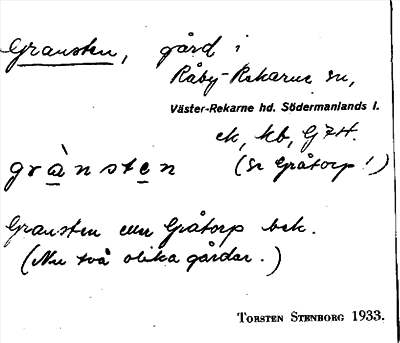 Gransten, gård i
Råby-Rekarne sn,
Väster-Rekarne hd. Södermanlands l.
ek, kb, GJH.
grànsten (Se Gråtorp!)
Gransten eller Gråtorp bek.
(Nu två olika gårdar.)
TORSTEN STENBORG 1933.